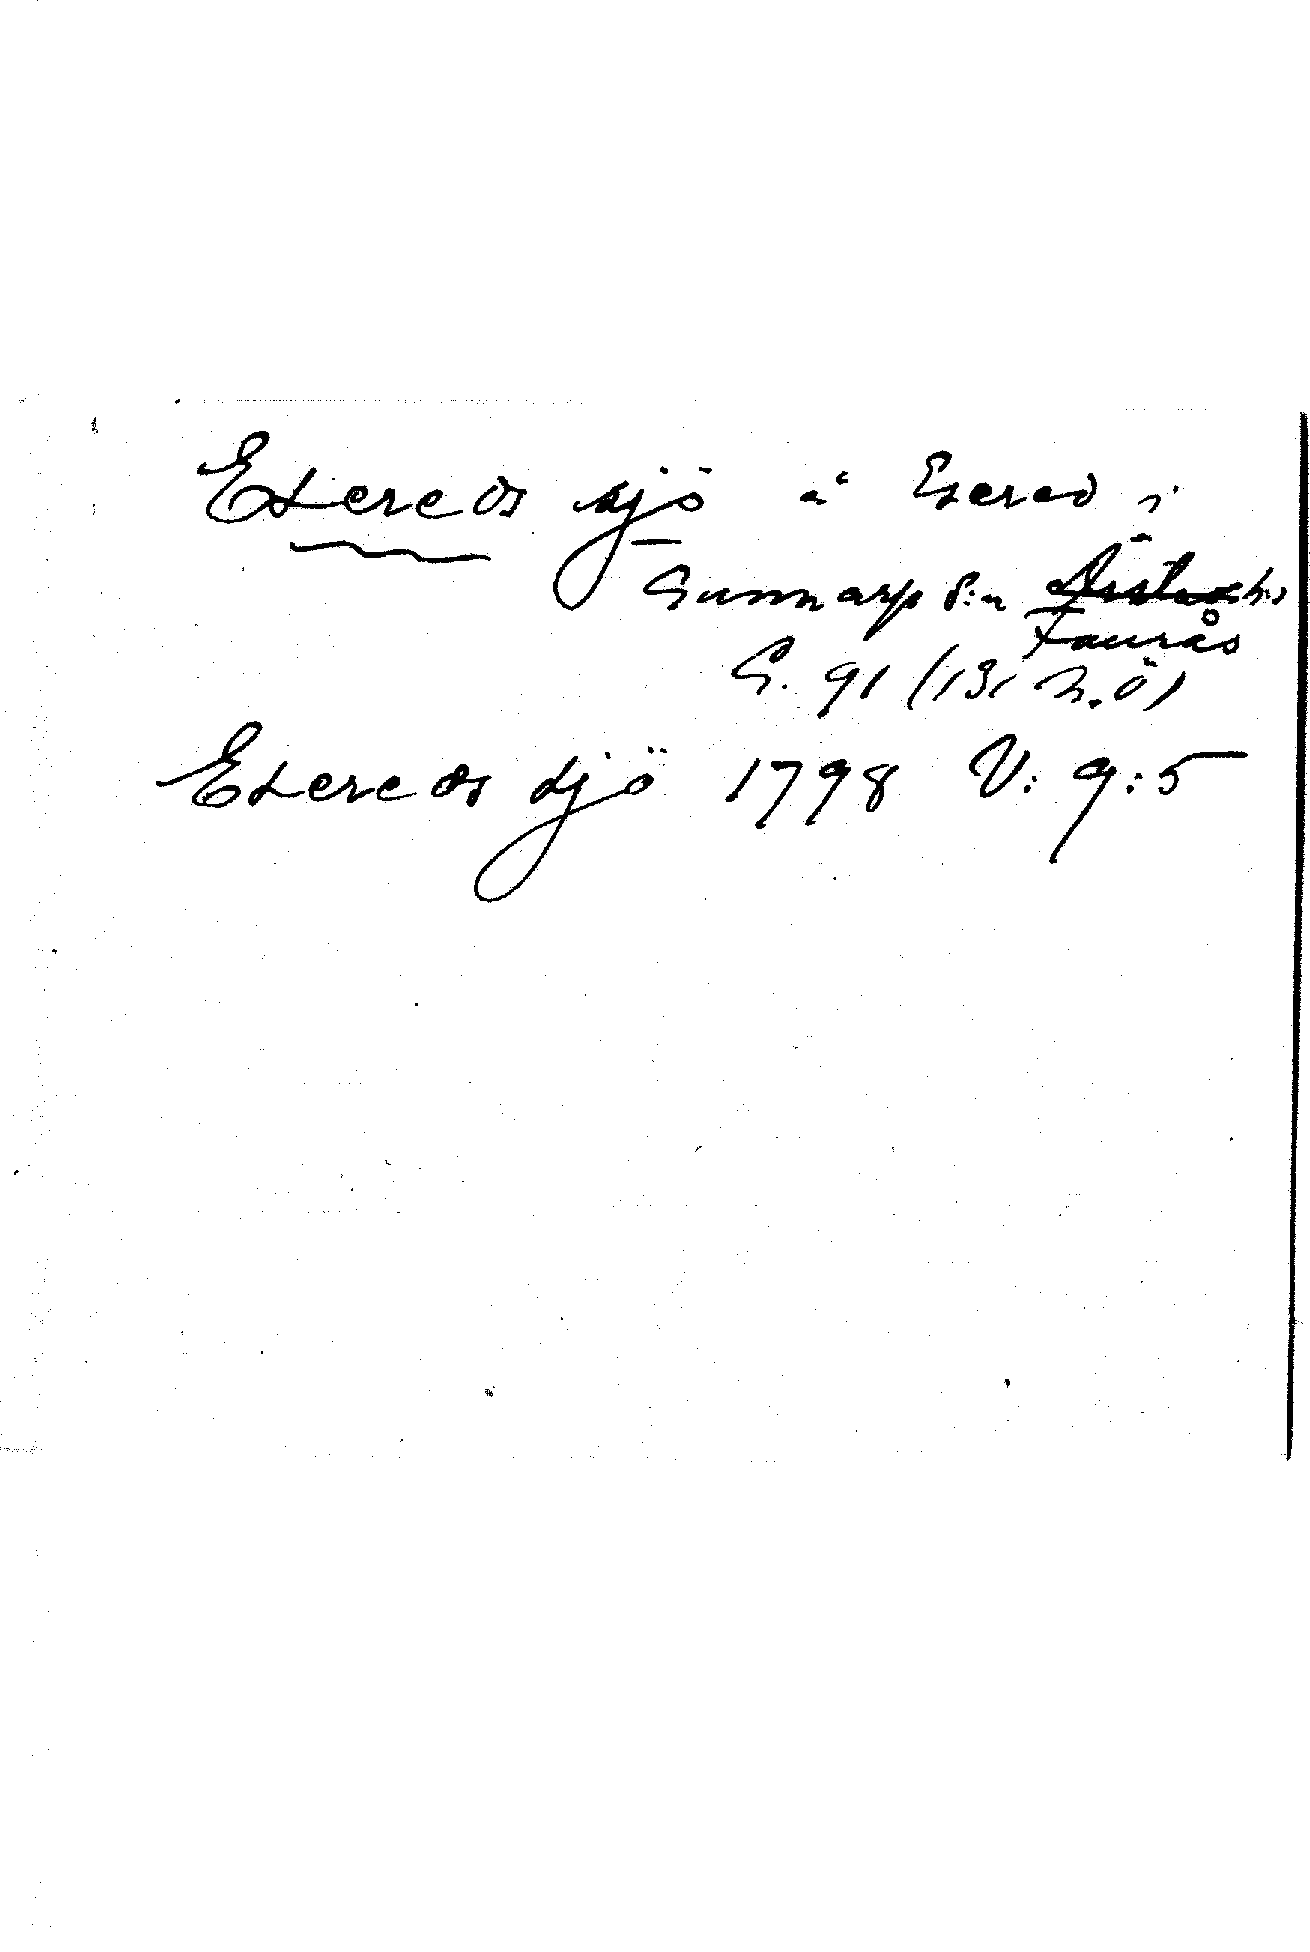 Esereds sjö å Esered i
Gunnarp s:n Årstads hd
Faurås
G. 91 (131 n.ö)
Esereds sjö 1798 V: 9:5